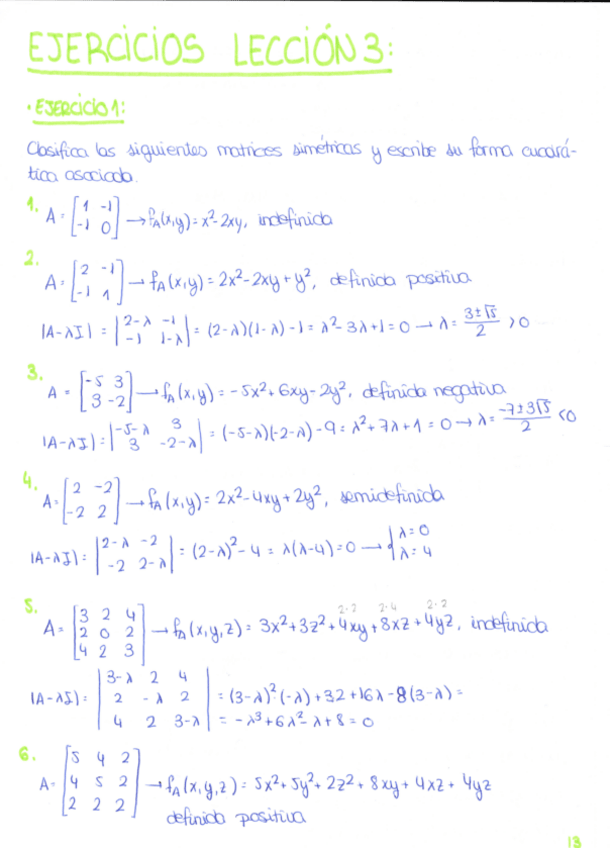 EJERCICIOS LECCIÓN 3:
• EJERCICIO 1:
Clasifica las siguientes matrices simétricas y escribe su forma cuadrá-
tica asociada.
1. A = [1 -1; -1 0] → f_A(x,y) = x² - 2xy, indefinida
2. A = [2 -1; -1 1] → f_A(x,y) = 2x² - 2xy + y², definida positiva
|A-λI| = |2-λ -1; -1 1-λ| = (2-λ)(1-λ) - 1 = λ² - 3λ + 1 = 0 → λ = (3±√5)/2 > 0
3. A = [-5 3; 3 -2] → f_A(x,y) = -5x² + 6xy - 2y², definida negativa
|A-λI| = |-5-λ 3; 3 -2-λ| = (-5-λ)(-2-λ) - 9 = λ² + 7λ + 1 = 0 → λ = (-7±3√5)/2 < 0
4. A = [2 -2; -2 2] → f_A(x,y) = 2x² - 4xy + 2y², semidefinida
|A-λI| = |2-λ -2; -2 2-λ| = (2-λ)² - 4 = λ(λ-4) = 0 → { λ = 0 λ = 4
2·2 2·4 2·2
5. A = [3 2 4; 2 0 2; 4 2 3] → f_A(x,y,z) = 3x² + 3z² + 4xy + 8xz + 4yz, indefinida
|A-λI| = |3-λ 2 4; 2 -λ 2; 4 2 3-λ| = (3-λ)²·(-λ) + 32 + 16λ - 8(3-λ) =
= -λ³ + 6λ² - λ + 8 = 0
6. A = [5 4 2; 4 5 2; 2 2 2] → f_A(x,y,z) = 5x² + 5y² + 2z² + 8xy + 4xz + 4yz
definida positiva
13